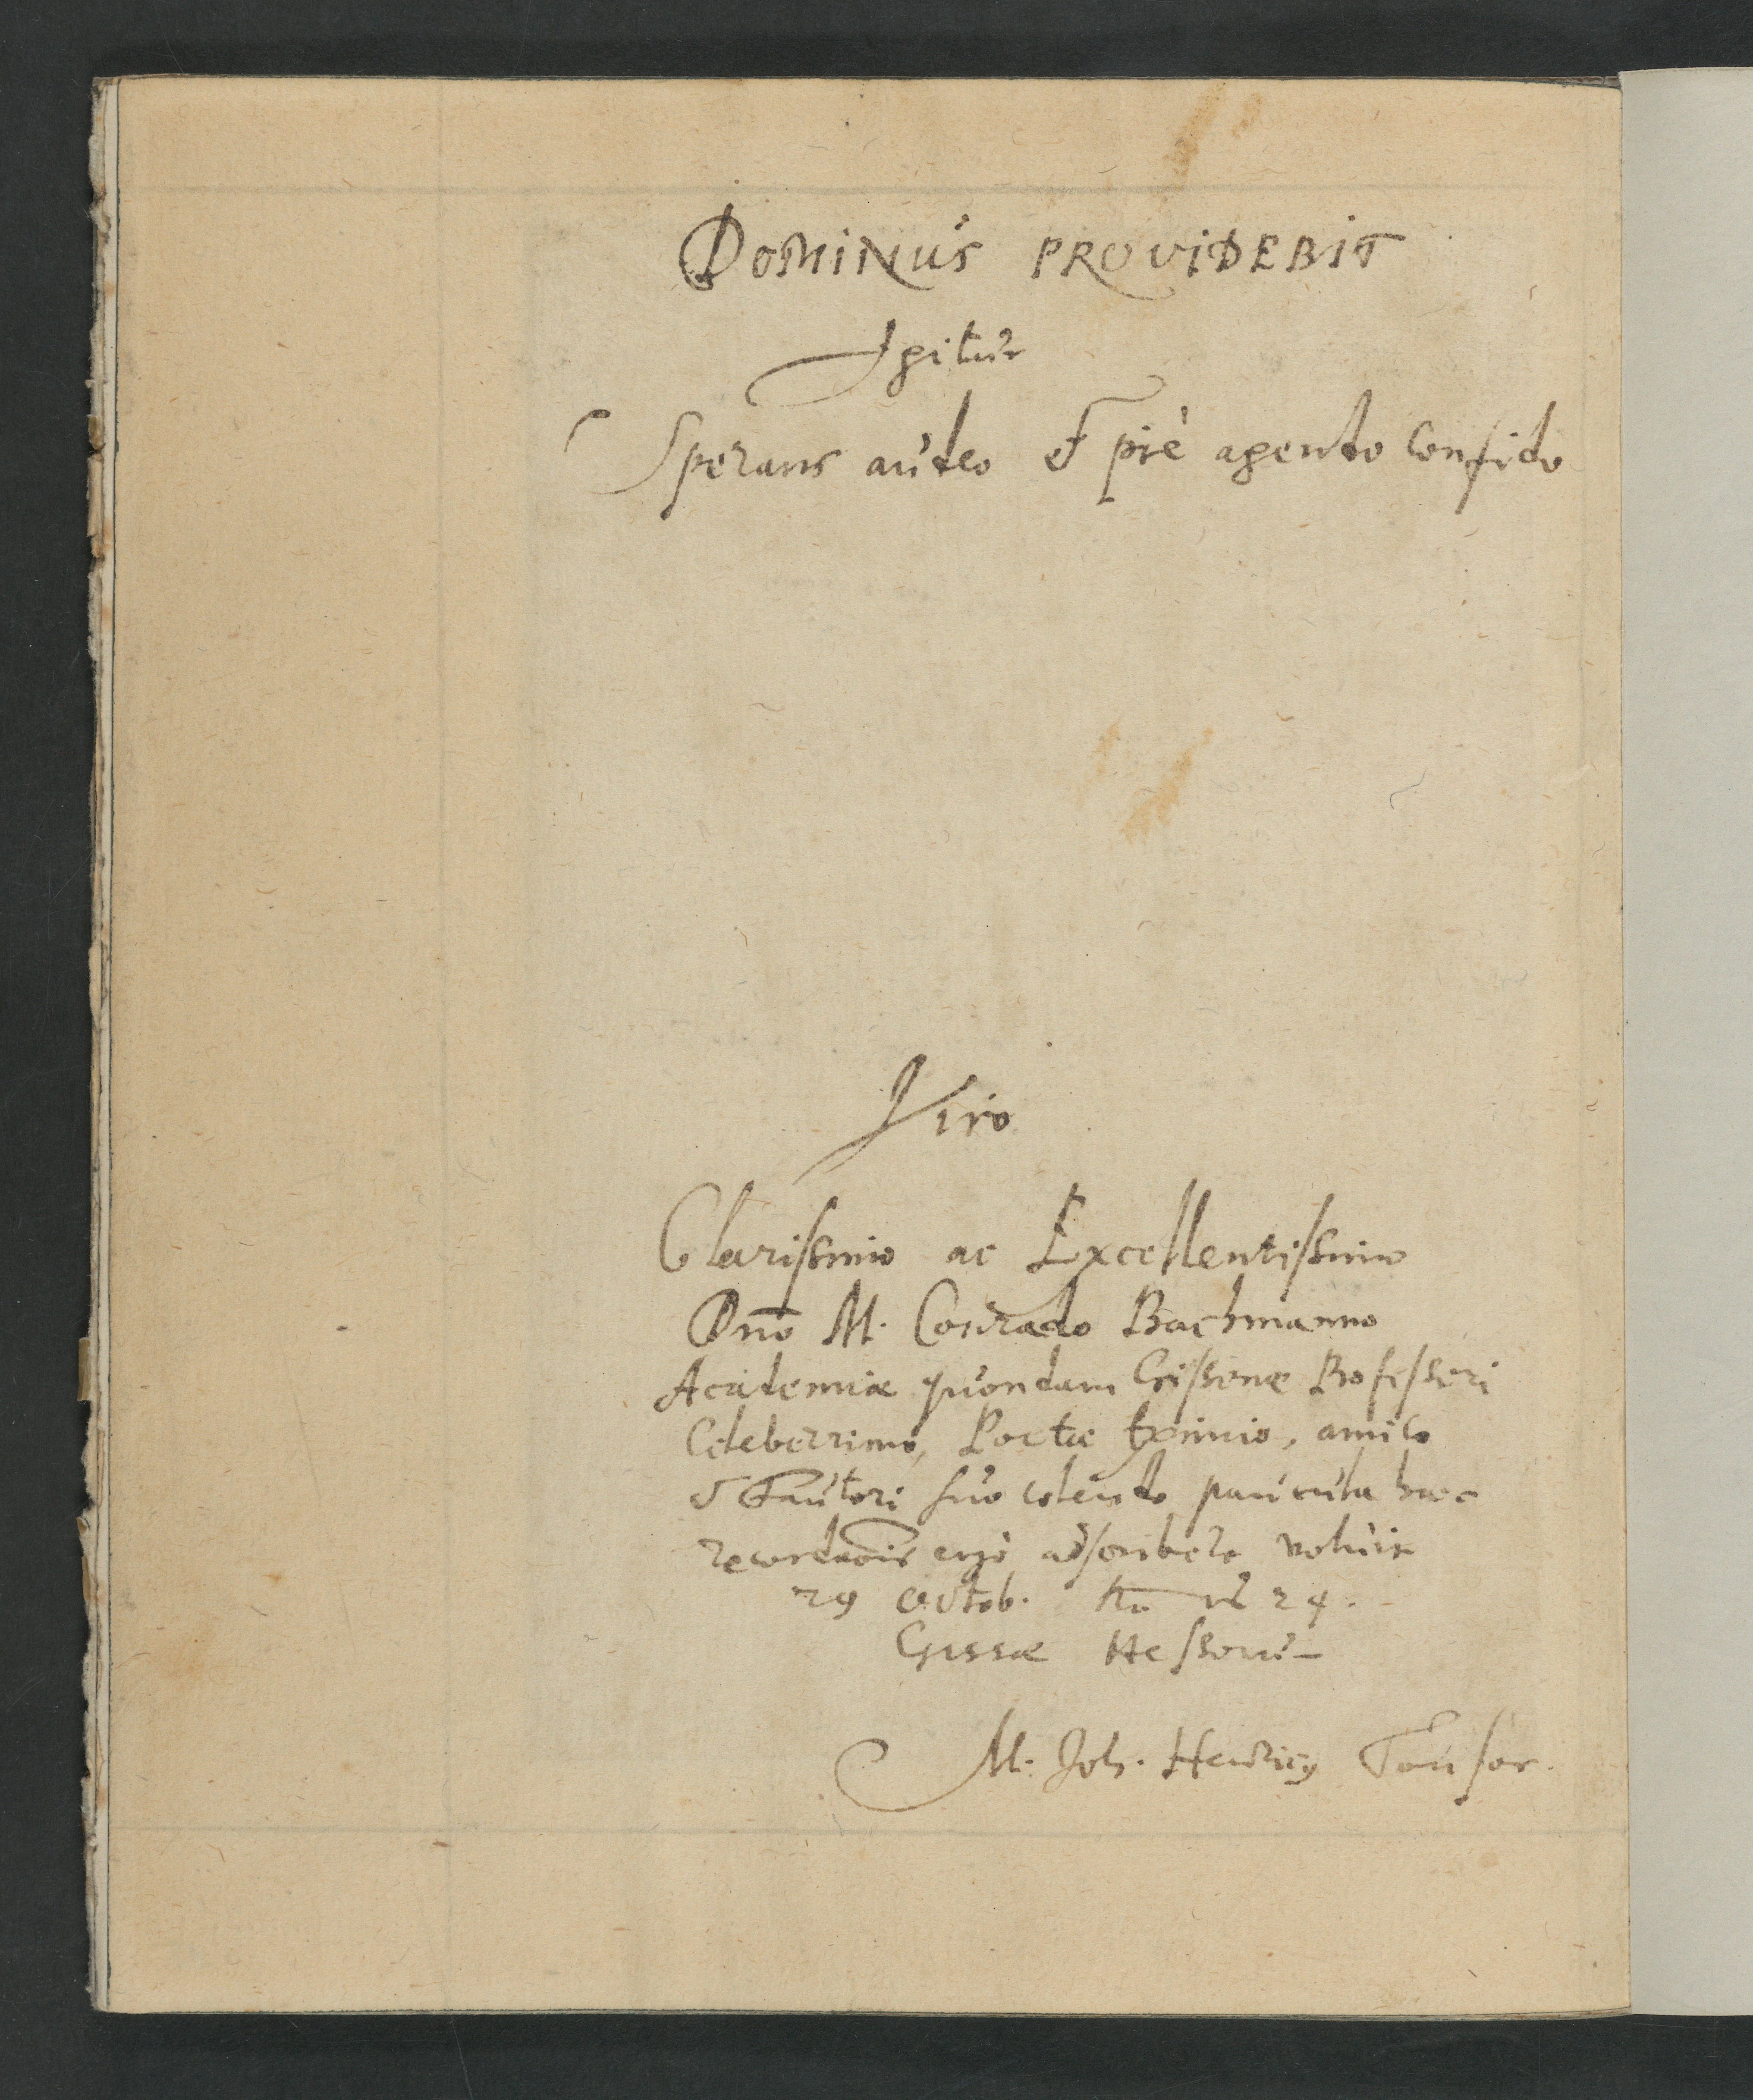 DOMINUS PROVIDEBIT
Igitur
Sperans audeo et piè agendo confido
Viro
Clarissimo ac Excellentissimo
Dn̄o M. Conrado Bachmanno
Academiæ quondam Gissenæ Professori
Celeberrimo, Poetæ eximio, amico
& Fautori suo colendo paucula haec
recordaōis ergò adscribere voluit
29 Octob. 24.
Gissæ Hessorū
M. Joh. Henricꝰ Tonsor.